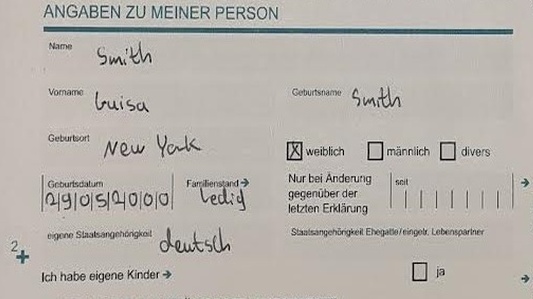 ANGABEN ZU MEINER PERSON
Name
Smith
Vorname Geburtsname
Luisa Smith
Geburtsort
New York
X weiblich männlich divers
Geburtsdatum Familienstand → Nur bei Änderung gegenüber der letzten Erklärung seit →
29052000 ledig
eigene Staatsangehörigkeit Staatsangehörigkeit Ehegatte/eingetr. Lebenspartner
deutsch
2+
Ich habe eigene Kinder → ja →